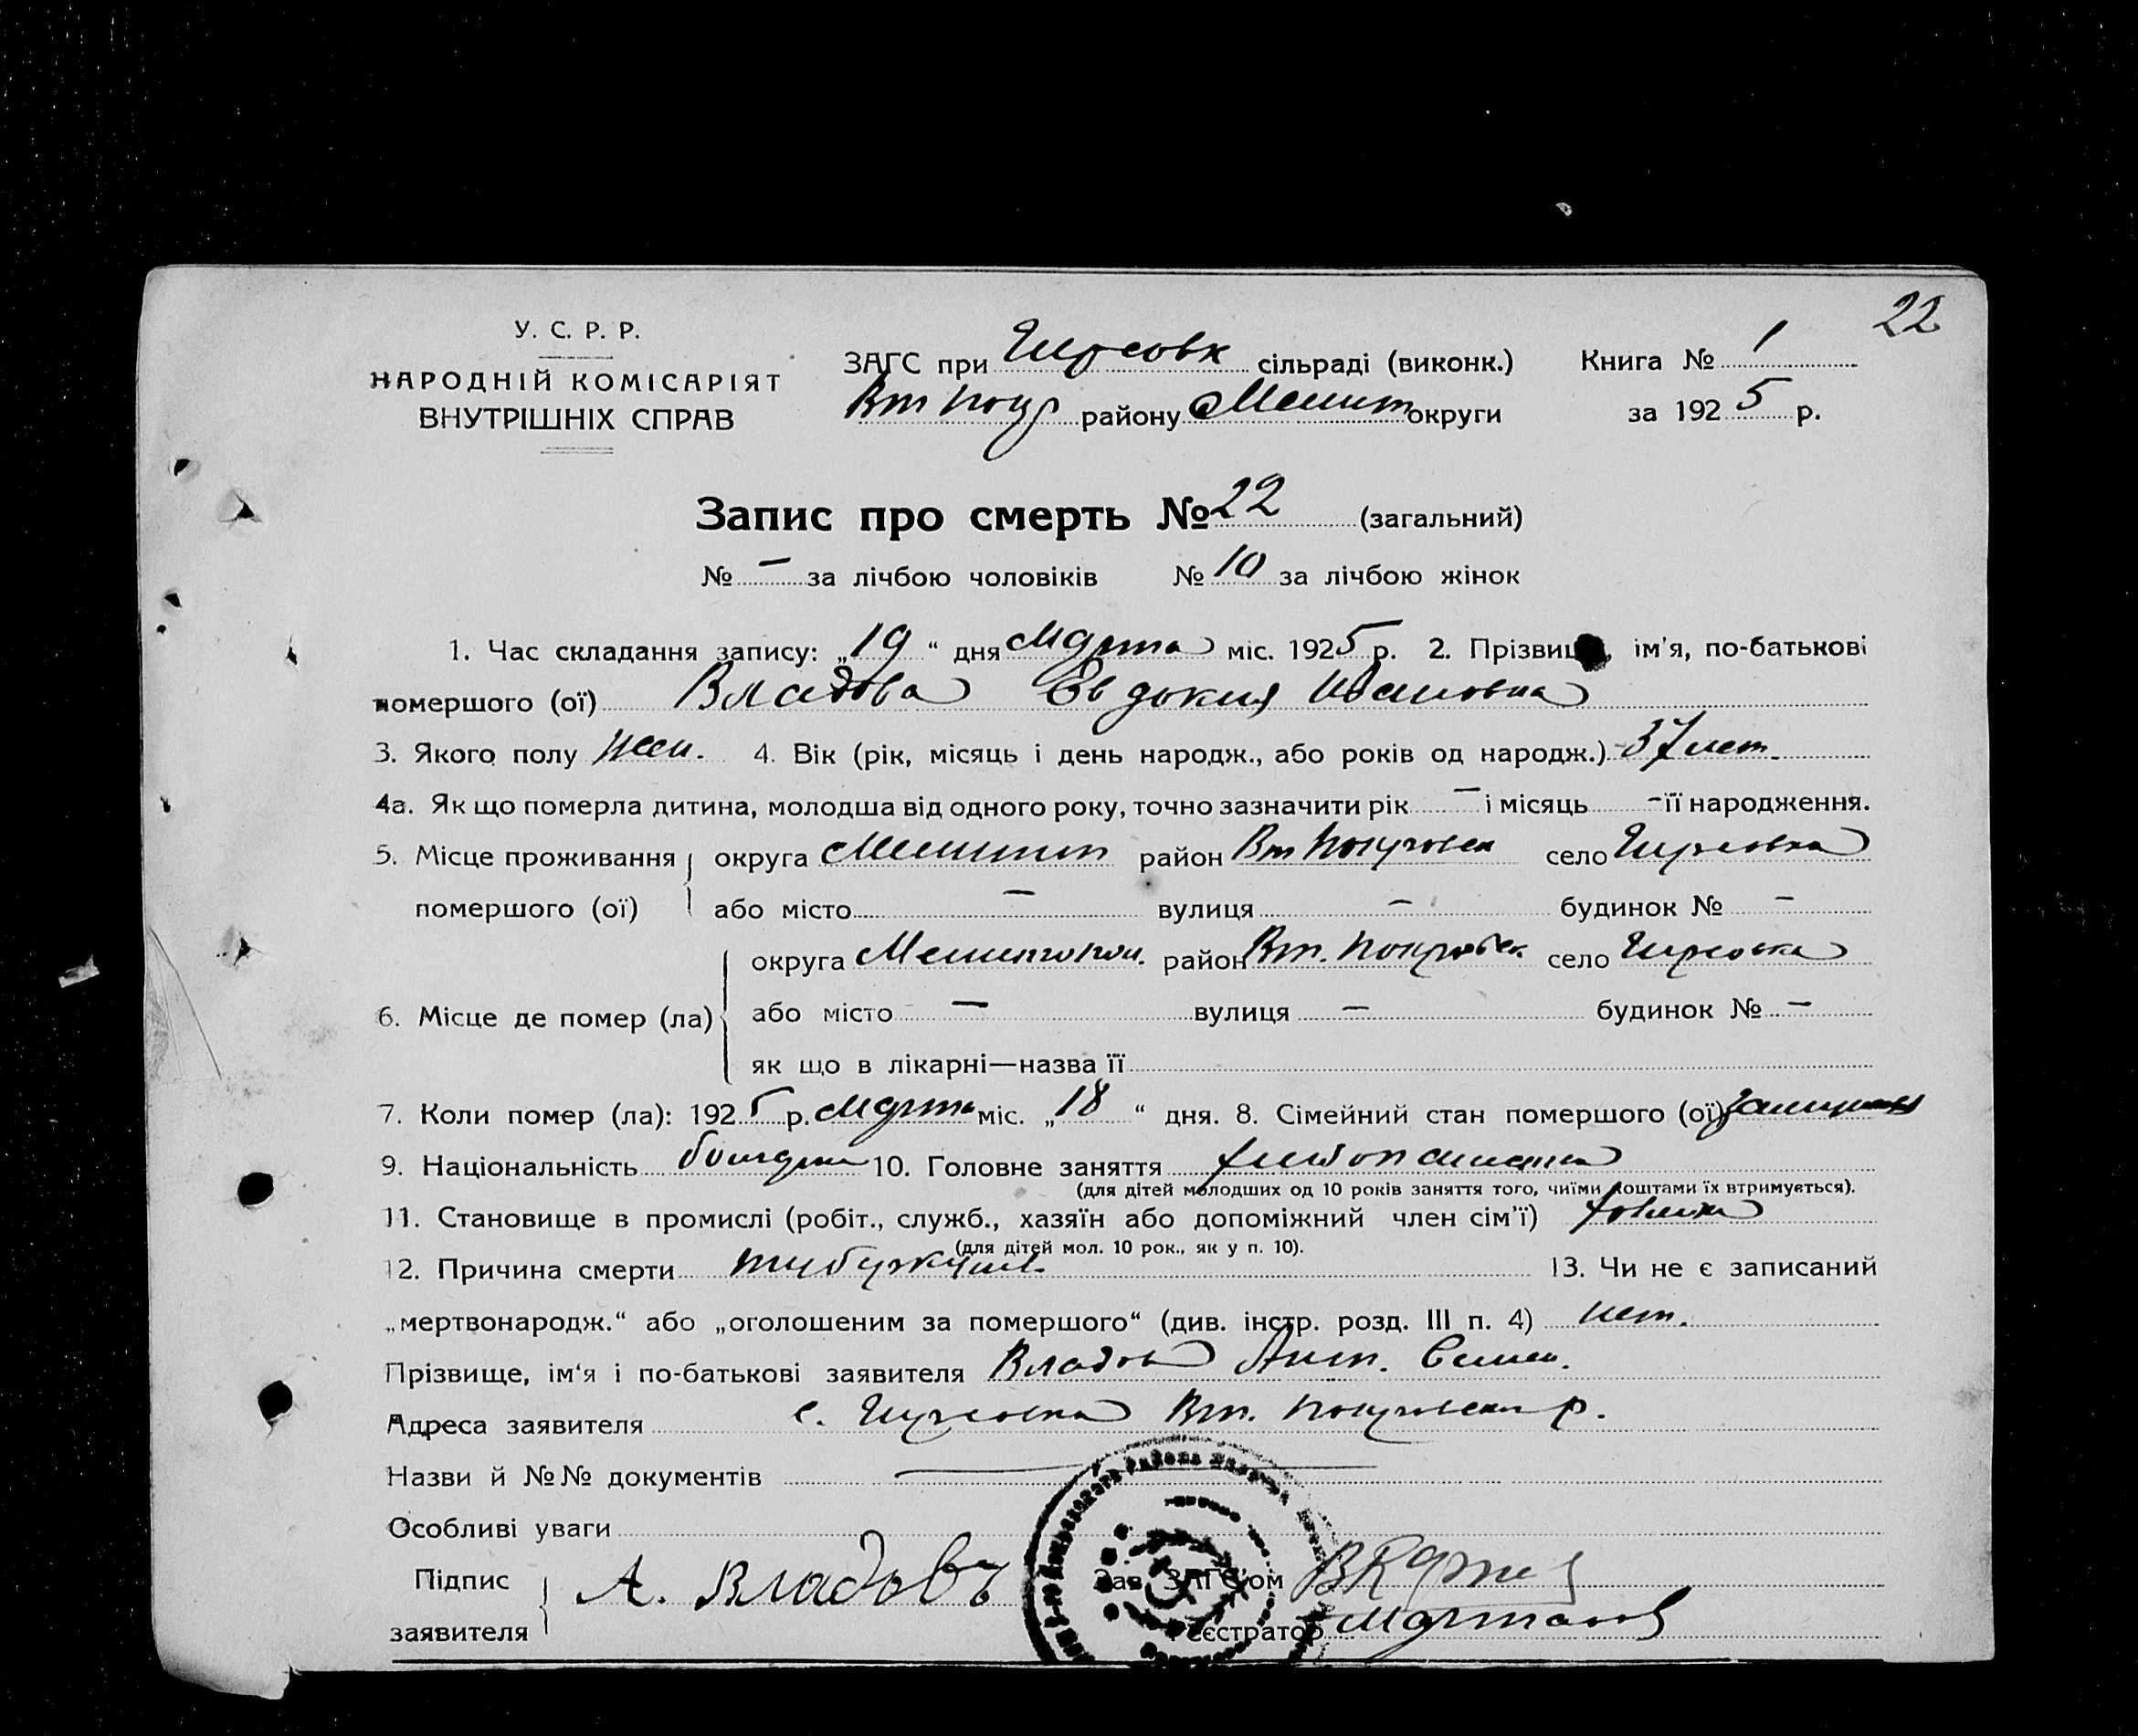 22
У. С. Р. Р.
НАРОДНІЙ КОМІСАРІЯТ
ВНУТРІШНІХ СПРАВ
ЗАГС при Гирсовк сільраді (виконк.) Книга № 1
Вт Покр району Мелит округи за 1925 р.
Запис про смерть № 22 (загальний)
№ – за лічбою чоловіків № 10 за лічбою жінок
1. Час складання запису: „19“ дня Марта міс. 1925 р. 2. Прізвище, ім'я, по-батькові
помершого (ої) Владова Евдокия Ивановна
3. Якого полу жен. 4. Вік (рік, місяць і день народж., або років од народж.) 37 лет.
4а. Як що померла дитина, молодша від одного року, точно зазначити рік – і місяць – її народження.
5. Місце проживання округа Мелитоп район Вт Покровск село Гирсовка
помершого (ої) або місто – вулиця – будинок № –
округа Мелитопол. район Вт. Покровск село Гирсовка
6. Місце де помер (ла) або місто – вулиця – будинок № –
як що в лікарні—назва її
7. Коли помер (ла): 1925 р. Марта міс. „18“ дня. 8. Сімейний стан помершого (ої) замужняя
9. Національність болгарка 10. Головне заняття хлебопашество
(для дітей молодших од 10 років заняття того, чиїми коштами їх втримується).
11. Становище в промислі (робіт., служб., хазяїн або допоміжний член сім'ї)
(для дітей мол. 10 рок., як у п. 10).
12. Причина смерти туберкулез. 13. Чи не є записаний
„мертвонародж.“ або „оголошеним за помершого“ (див. інстр. розд. III п. 4) нет.
Прізвище, ім'я і по-батькові заявителя Владов Ант. Семен.
Адреса заявителя с. Гирсовка Вт. Покровском р.
Назви й №№ документів
Особливі уваги
Підпис
заявителя А. Владовъ
Зав. ЗАГС'ом
Реєстратор